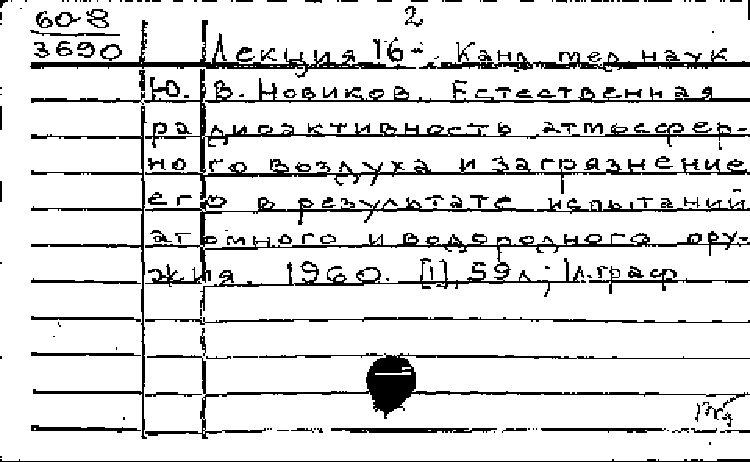 60-8
3690
2
Лекция 16-. Канд. мед. наук
Ю. В. Новиков. Естественная
радиоактивность атмосфер-
ного воздуха и загрязнение
его в результате испытаний
атомного и водородного ору-
жия. 1960. [1], 59 л; 1 л. граф